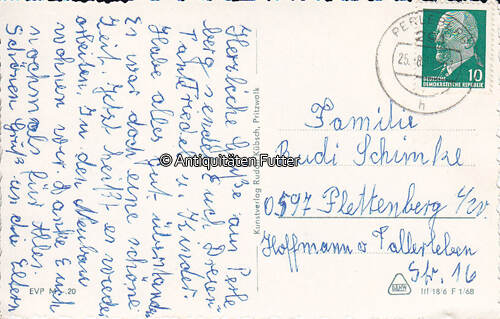 Herzliche Grüße aus Perle
berg sendet Euch
Tante Frieda u. Kinder
Habe alles gut überstanden
Es war doch eine schöne
Zeit. Jetzt heißt es wieder
arbeiten. In den Neubau
wohnen wir. Danke Euch
nochmals für Alles.
Schönen Gruß an die Eltern
EVP 20
Kunstverlag Rudolf Hübsch, Pritzwalk
© Antiquitäten Futter
PERLEBERG
h
10
DEUTSCHE
DEMOKRATISCHE REPUBLIK
Familie
Rudi Schimke
0597 Plettenberg i/W
Hoffmann v Fallersleben
Str. 16
III 18/6 F 1/68